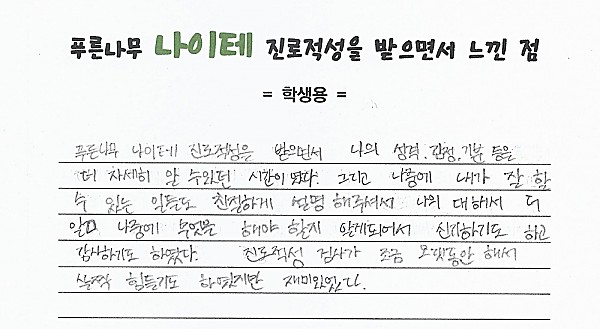 푸른나무 나이테 진로적성을 받으면서 느낀 점
= 학생용 =
푸른나무 나이테 진로적성을 받으면서 나의 성격, 감정, 기분 등을
더 자세히 알 수있던 시간이 였다. 그리고 나중에 내가 잘 할
수 있는 일들도 친절하게 설명 해주셔서 나의 대해서 더
알고 나중에 무엇을 해야 할지 알게되어서 신기하기도 하고
감사하기도 하였다. 진로적성 검사가 조금 오랫동안 해서
살짝 힘들기도 하였지만 재미있었다.